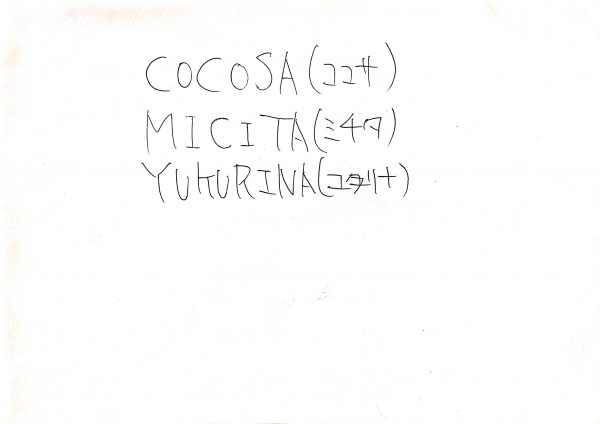 COCOSA(ココサ)
MICITA(ミチタ)
YUKURINA